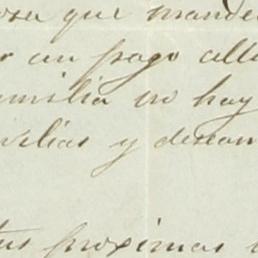 osa que mande
r un pago all
amilia no hay
ilias y desean
tus proximas